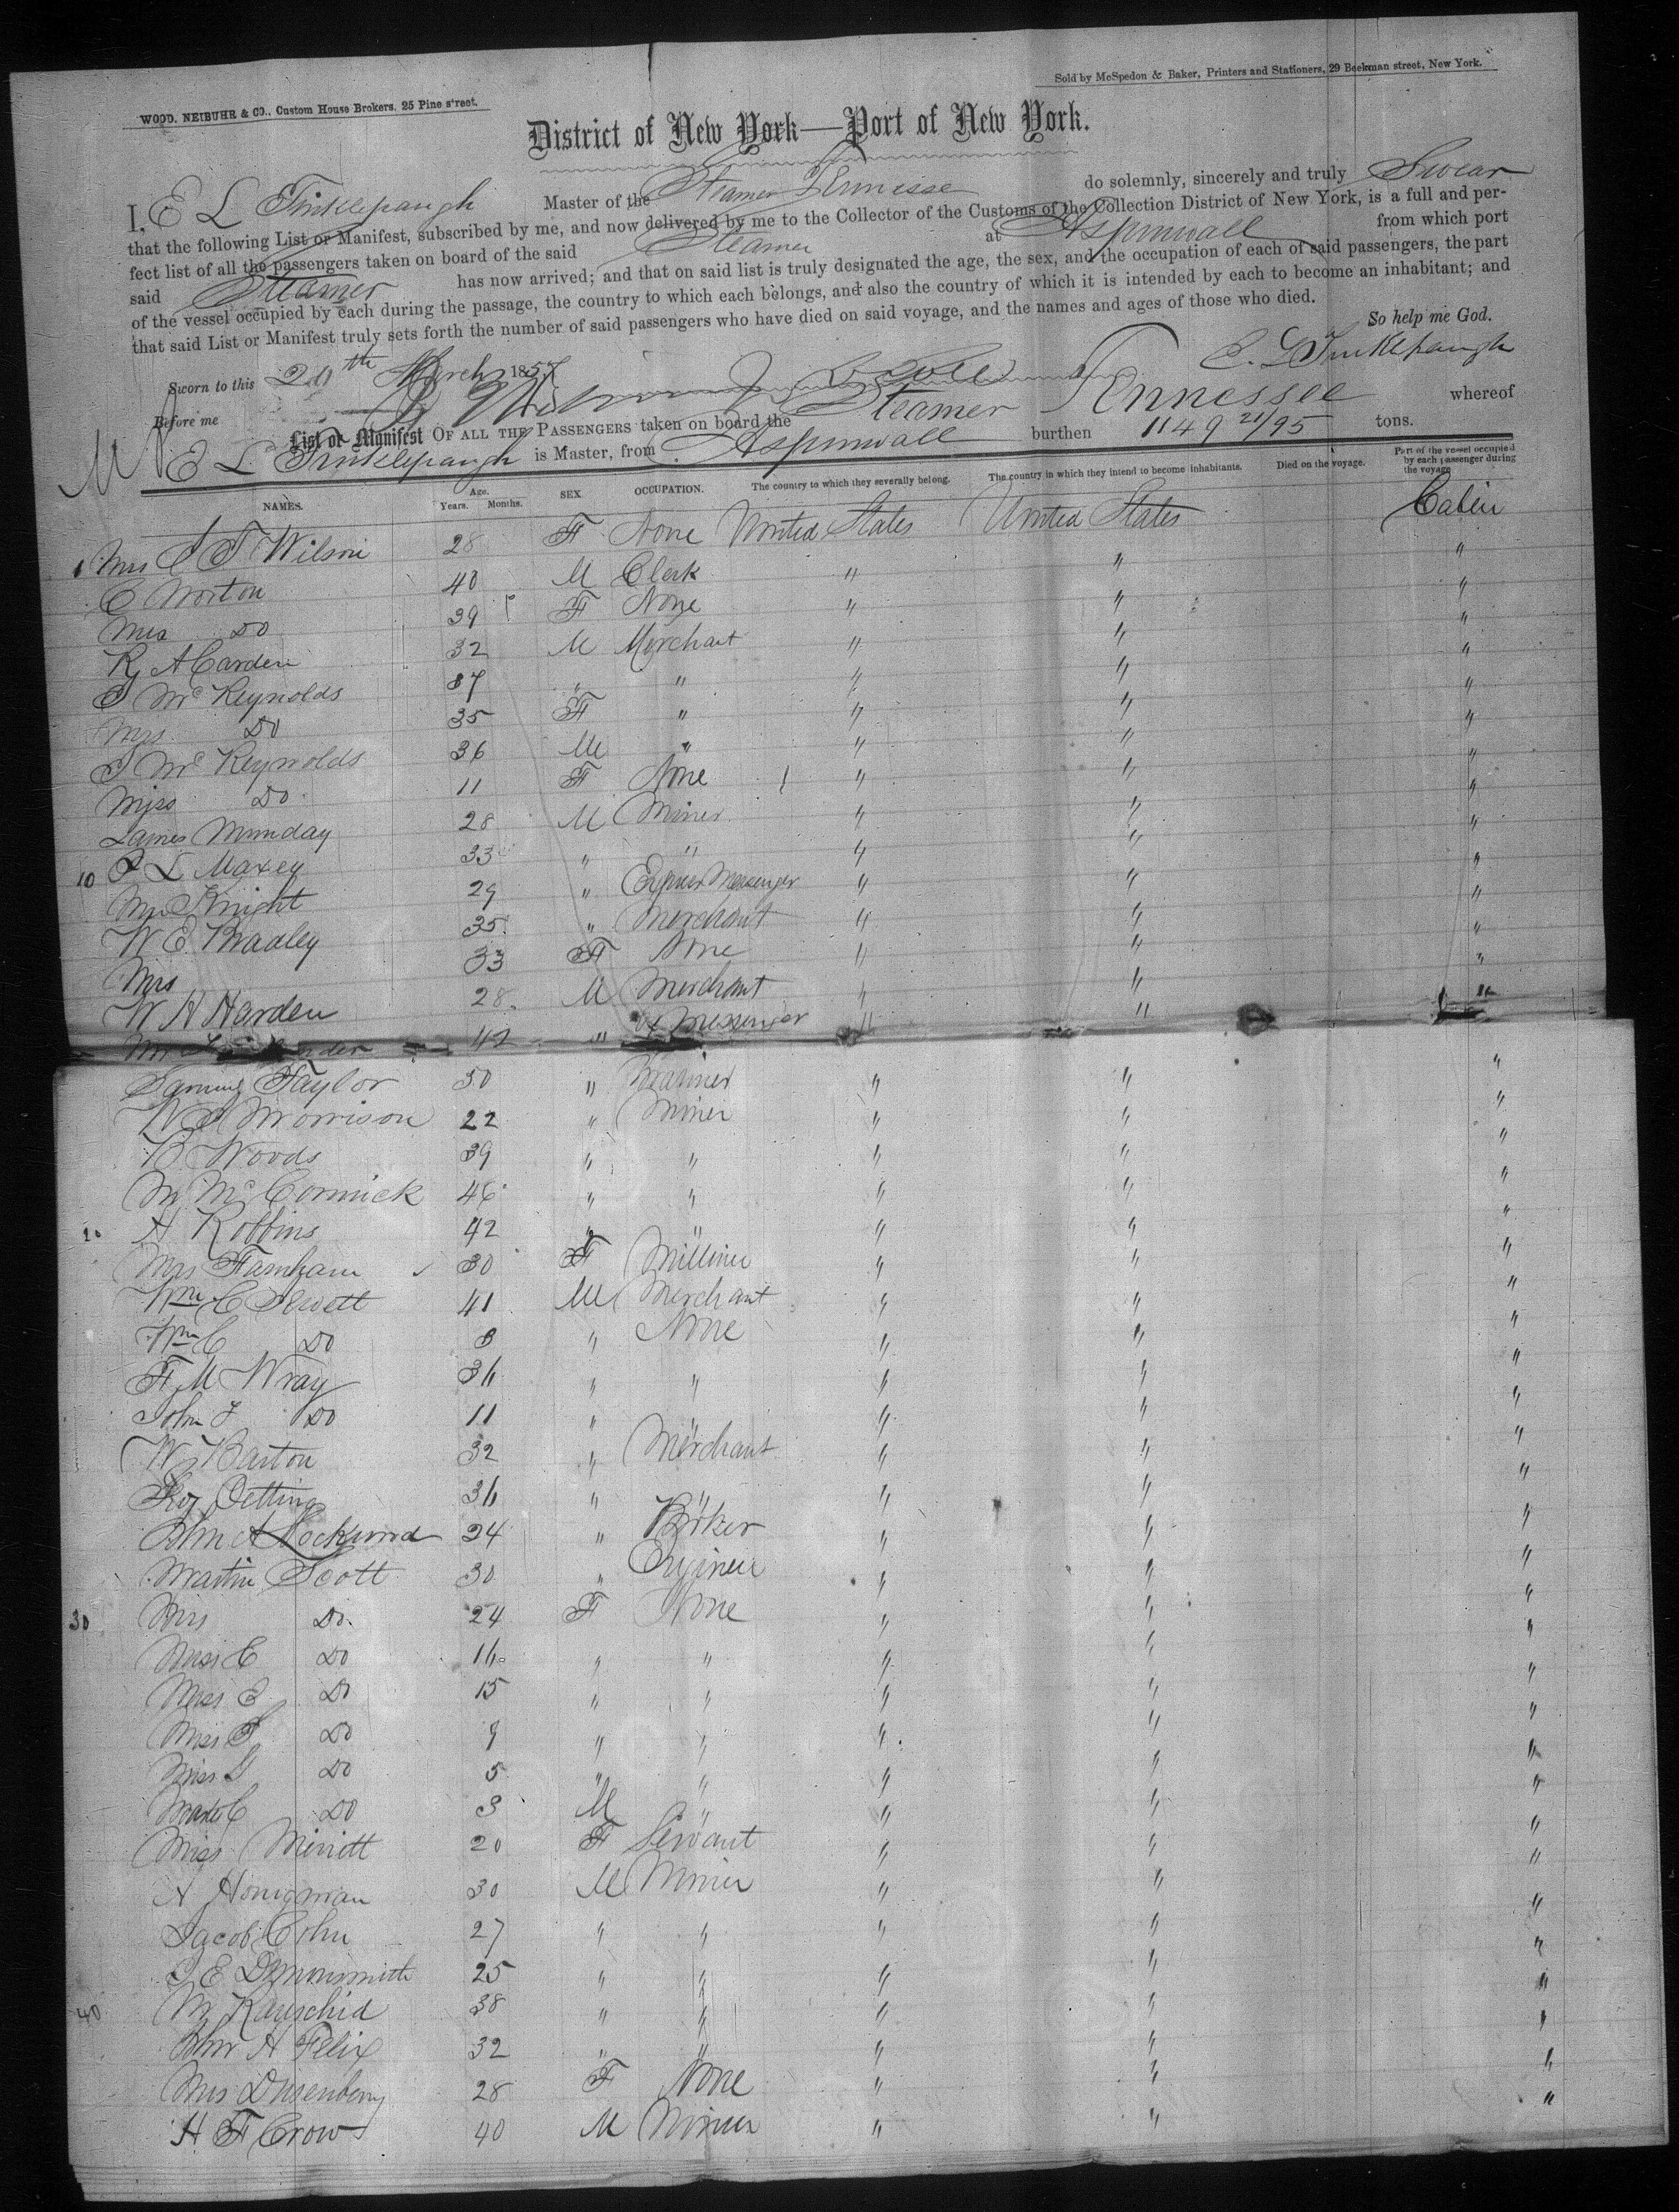 WOOD, NEIBUHR & CO., Custom House Brokers, 25 Pine street.
Sold by McSpedon & Baker, Printers and Stationers, 29 Beekman street, New York.
District of New York—Port of New York.
I, E L Tinklepaugh Master of the Steamer Tennessee do solemnly, sincerely and truly Swear
that the following List or Manifest, subscribed by me, and now delivered by me to the Collector of the Customs of the Collection District of New York, is a full and per-
fect list of all the passengers taken on board of the said Steamer at Aspinwall from which port
said Steamer has now arrived; and that on said list is truly designated the age, the sex, and the occupation of each of said passengers, the part
of the vessel occupied by each during the passage, the country to which each belongs, and also the country of which it is intended by each to become an inhabitant; and
that said List or Manifest truly sets forth the number of said passengers who have died on said voyage, and the names and ages of those who died.
So help me God.
Sworn to this th March 1857 E. L Tinklepaugh
Before me
List or Manifest OF ALL THE PASSENGERS taken on board the Steamer Tennessee whereof
E L Tinklepaugh is Master, from Aspinwall burthen 1149 21/95 tons.
NAMES. Age. Years. Months. SEX OCCUPATION. The country to which they severally belong. The country in which they intend to become inhabitants. Died on the voyage. Part of the vessel occupied by each passenger during the voyage
1 Mrs Wilson 28 F None United States United States Cabin
C Norton 40 M Clerk " " "
Mrs Do 39 F None " " "
R A Carden 32 M Merchant " " "
McReynolds 37 " " " " "
Mrs Do 35 F " " " "
McReynolds 36 M " " " "
Miss Do 11 F None " " "
James Munday 28 M Miner " " "
10 L Maxey 33 " " " " "
Mr Knight 29 " Express Messenger " " "
W E Bradley 35 " Merchant " " "
Mrs 33 F None " " "
W H Harden 28 M Merchant " " "
Mr 42 " Messenger " " "
Samuel Taylor 50 " Mariner " " "
W Morrison 22 " Miner " " "
B Woods 39 " " " " "
M McCormick 46 " " " " "
20 H Robbins 42 " " " " "
Mrs Farnham 30 F Milliner " " "
Wm C Jewett 41 M Merchant " " "
Wm C Do 8 " None " " "
F M Wray 36 " " " " "
John F Do 11 " " " " "
W Barton 32 " Merchant " " "
Oetting 36 " " " " "
John A Lockwood 24 " Broker " " "
Martin Scott 30 " Engineer " " "
30 Mrs Do. 24 F None " " "
Miss C Do 16 " " " " "
Miss E Do 15 " " " " "
Miss Do 9 " " " " "
Miss Do 5 " " " " "
Do 3 M " " " "
Miss Merritt 20 F Servant " " "
A Honigman 30 M Miner " " "
Jacob Cohn 27 " " " " "
25 " " " " "
40 M 38 " " " " "
John H Felix 32 " " " " "
Mrs Dusenberry 28 F None " " "
H F Crow 40 M Miner " " "